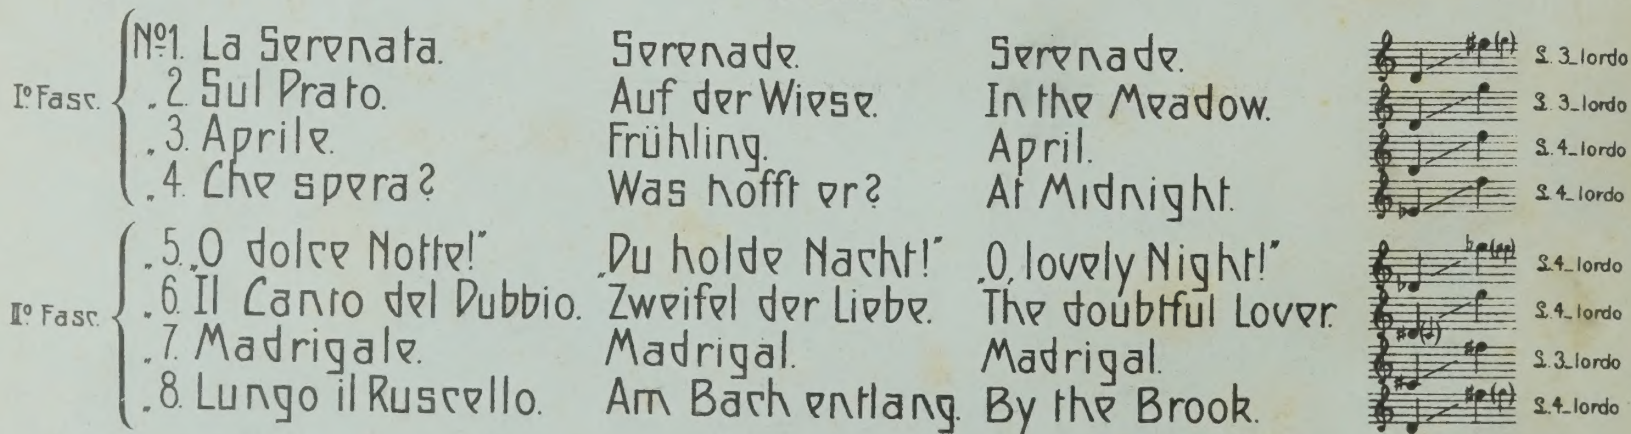 Iº Fasc.
Nº1. La Serenata. Serenade. Serenade. L. 3_lordo
„ 2. Sul Prato. Auf der Wiese. In the Meadow. L. 3_lordo
„ 3. Aprile. Frühling. April. L. 4_lordo
„ 4. Che spera? Was hofft er? At Midnight. L. 4_lordo
IIº Fasc.
„ 5. „O dolce Notte!” „Du holde Nacht!” „O, lovely Night!” L. 4_lordo
„ 6. Il Canto del Dubbio. Zweifel der Liebe. The doubtful Lover. L. 4_lordo
„ 7. Madrigale. Madrigal. Madrigal. L. 3_lordo
„ 8. Lungo il Ruscello. Am Bach entlang. By the Brook. L. 4_lordo